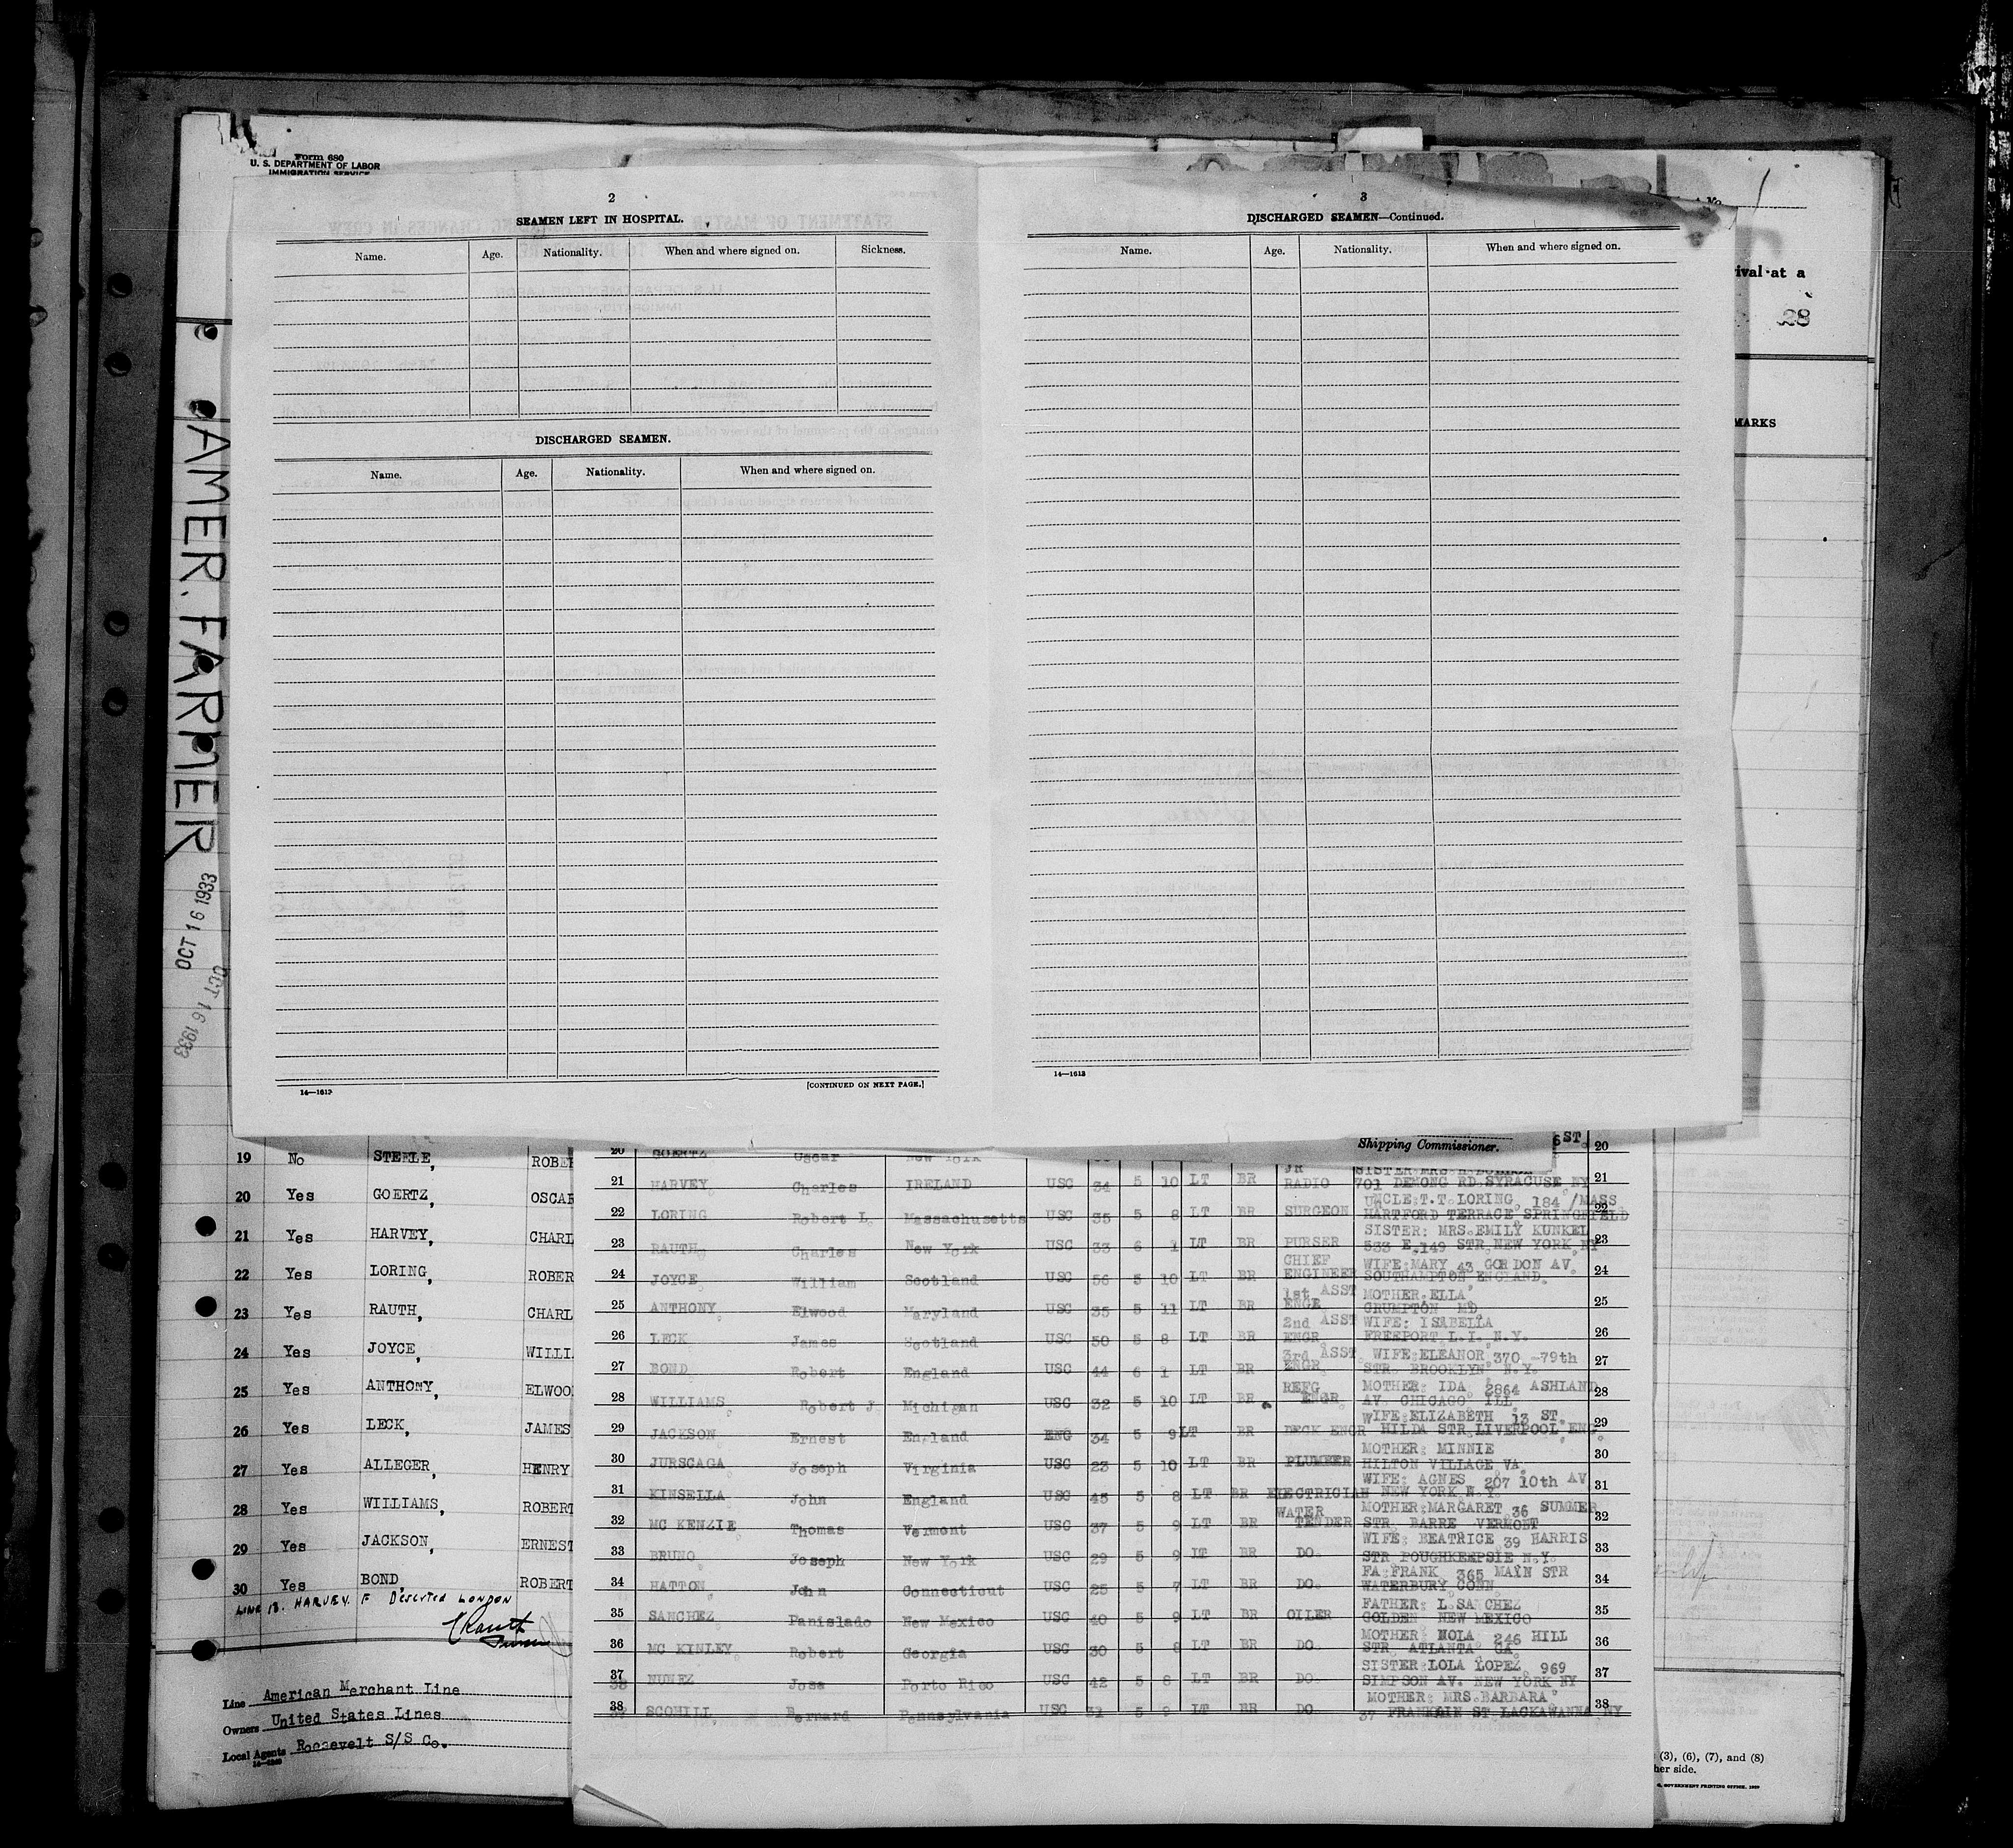 Form 680
U. S. DEPARTMENT OF LABOR
IMMIGRATION SERVICE
AMER. FARMER
OCT 16 1933
OCT 16 1933
2
SEAMEN LEFT IN HOSPITAL.
Name. Age. Nationality. When and where signed on. Sickness.
DISCHARGED SEAMEN.
Name. Age. Nationality. When and where signed on.
14—1613
[CONTINUED ON NEXT PAGE.]
3
DISCHARGED SEAMEN—Continued.
Name. Age. Nationality. When and where signed on.
14—1613
rival at a
28
MARKS
19 No STEELE, ROBE
20 Yes GOERTZ, OSCAR
21 Yes HARVEY, CHARL
22 Yes LORING, ROBER
23 Yes RAUTH, CHARL
24 Yes JOYCE, WILLI
25 Yes ANTHONY, ELWOO
26 Yes LECK, JAMES
27 Yes ALLEGER, HENRY
28 Yes WILLIAMS, ROBERT
29 Yes JACKSON, ERNEST
30 Yes BOND, ROBERT
LINE 18. HARVEY. F Deserted LONDON
Line American Merchant Line
Owners United States Lines
Local Agents Roosevelt S/S Co.
Shipping Commissioner.
6 ST. 20
20 GOERTZ Oscar New York
21 HARVEY Charles IRELAND USC 34 5 10 LT BR JR RADIO 701 DEMONG RD.SYRACUSE NY 21
22 LORING Robert L. Massachusetts USC 35 5 8 LT BR SURGEON UNCLE:T.T. LORING, 184 /MASS HARTFORD TERRACE SPRINGFIELD 22
23 RAUTH Charles New York USC 33 6 1 LT BR PURSER SISTER: MRS.EMILY KUNKEL 533 E.149 STR.NEW YORK NY 23
24 JOYCE William Scotland USC 56 5 10 LT BR CHIEF ENGINEER WIFE:MARY 43 GORDON AV. SOUTHAMPTON ENGLAND. 24
25 ANTHONY Elwood Maryland USC 35 5 11 LT BR 1st ASST ENGR MOTHER:ELLA CRUMPTON MD 25
26 LECK James Scotland USC 50 5 8 LT BR 2nd ASST ENGR WIFE: ISABELLA FREEPORT L.I. N.Y. 26
27 BOND Robert England USC 44 6 1 LT BR 3rd ASST. ENGR WIFE:ELEANOR 370 -79th STR. BROOKLYN N.Y. 27
28 WILLIAMS Robert J. Michigan USC 32 5 10 LT BR REFG ENGR MOTHER: IDA 2864 ASHLAND AV. CHICAGO ILL 28
29 JACKSON Ernest England ENG 34 5 9 LT BR DECK ENGR WIFE:ELIZABETH 13 ST. HILDA STR.LIVERPOOL ENG. 29
30 JURSCAGA Joseph Virginia USC 23 5 10 LT BR PLUMBER MOTHER: MINNIE HILTON VILLAGE VA. 30
31 KINSELLA John England USC 45 5 8 LT BR ELECTRICIAN WIFE: AGNES 207 10th AV NEW YORK N.Y. 31
32 MC KENZIE Thomas Vermont USC 37 5 9 LT BR WATER TENDER MOTHER:MARGARET 36 SUMMER STR. BARRE VERMONT 32
33 BRUNO Joseph New York USC 29 5 9 LT BR DO. WIFE: BEATRICE 39 HARRIS STR POUGHKEEPSIE N.Y. 33
34 HATTON John Connecticut USC 25 5 7 LT BR DO. FA:FRANK 365 MAIN STR WATERBURY CONN. 34
35 SANCHEZ Panislado New Mexico USC 40 5 9 LT BR OILER FATHER: L SANCHEZ GOLDEN NEW MEXICO 35
36 MC KINLEY Robert Georgia USC 30 5 8 LT BR DO. MOTHER NOLA 246 HILL STR ATLANTA GA. 36
37 NUNEZ Jose Porto Rico USC 42 5 8 LT BR DO. SISTER:LOLA LOPEZ 969 SIMPSON AV. NEW YORK NY 37
38 SCOHILL Bernard Pennsylvania USC 31 5 9 LT BR DO. MOTHER: MRS.BARBARA 37 ST LACKAWANNA NY 38
(3), (6), (7), and (8)
her side.
GOVERNMENT PRINTING OFFICE.